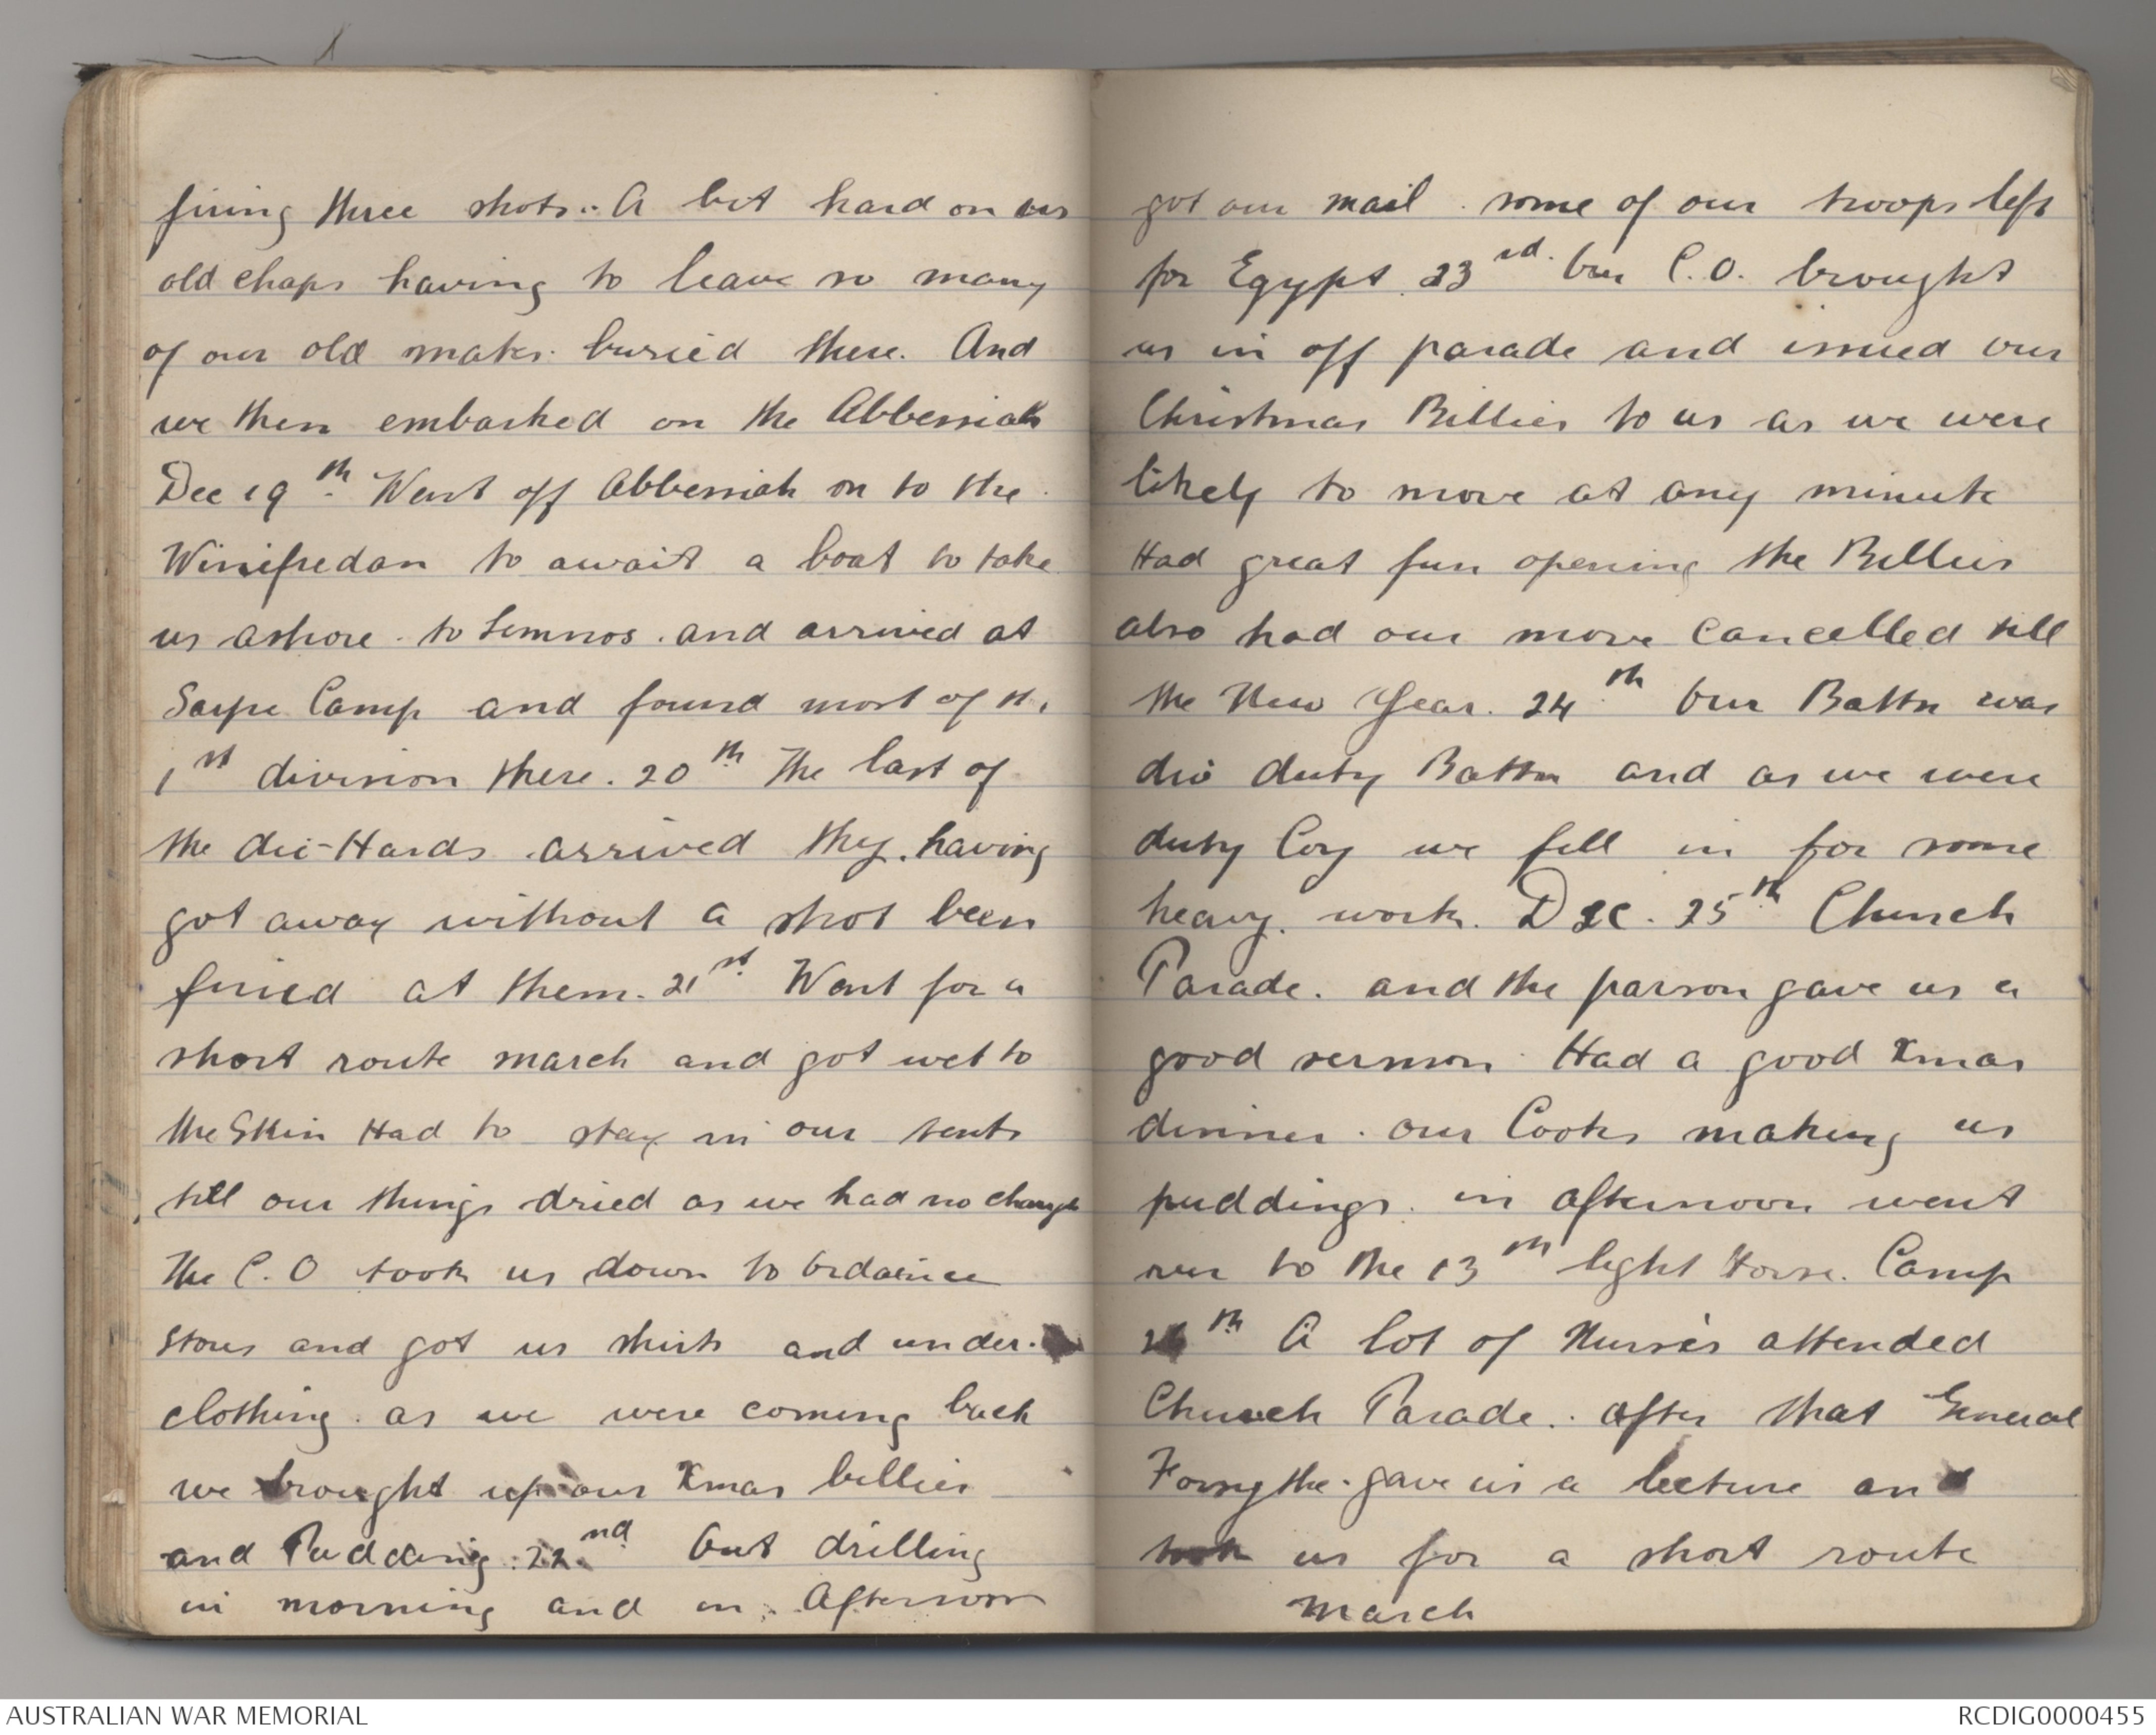 firing three shots. A bit hard on us
old chaps having to leave so many
of our old mates buried there. And
we then embarked on the Abbessiah
Dec 19th Went off Abbessiah on to the
Winifredan to await a boat to take
us ashore to Lemnos and arrived at
Sarpe Camp and found most of the
1st division there. 20th The last of
the die-Hards arrived they having
got away without a shot been
fired at them. 21st Went for a
short route march and got wet to
the Skin Had to stay in our tents
till our things dried as we had no change
The C.O took us down to Ordaince
Stores and got us shirts and under.
clothing. as we were coming back
we brought up our Xmas billies
and Pudding. 22nd Out drilling
in morning and in Afternoon
got our mail. some of our troops left
for Egypt. 23rd. Our C.O. brought
us in off parade and issued our
Christmas Billies to us as we were
likely to move at any minute
Had great fun opening the Billies
also had our move cancelled till
the New Year. 24th Our Battn was
div duty Battn and as we were
duty Coy we fell in for some
heavy work. Dec. 25th Church
Parade. and the parson gave us a
good sermon. Had a good Xmas
dinner. our Cooks making us
puddings. in afternoon went
over to the 13th light Horse. Camp
26th A lot of Nurses attended
Church Parade. after that General
Forsythe gave us a lecture and
took us for a short route
march
AUSTRALIAN WAR MEMORIAL
RCDIG0000455